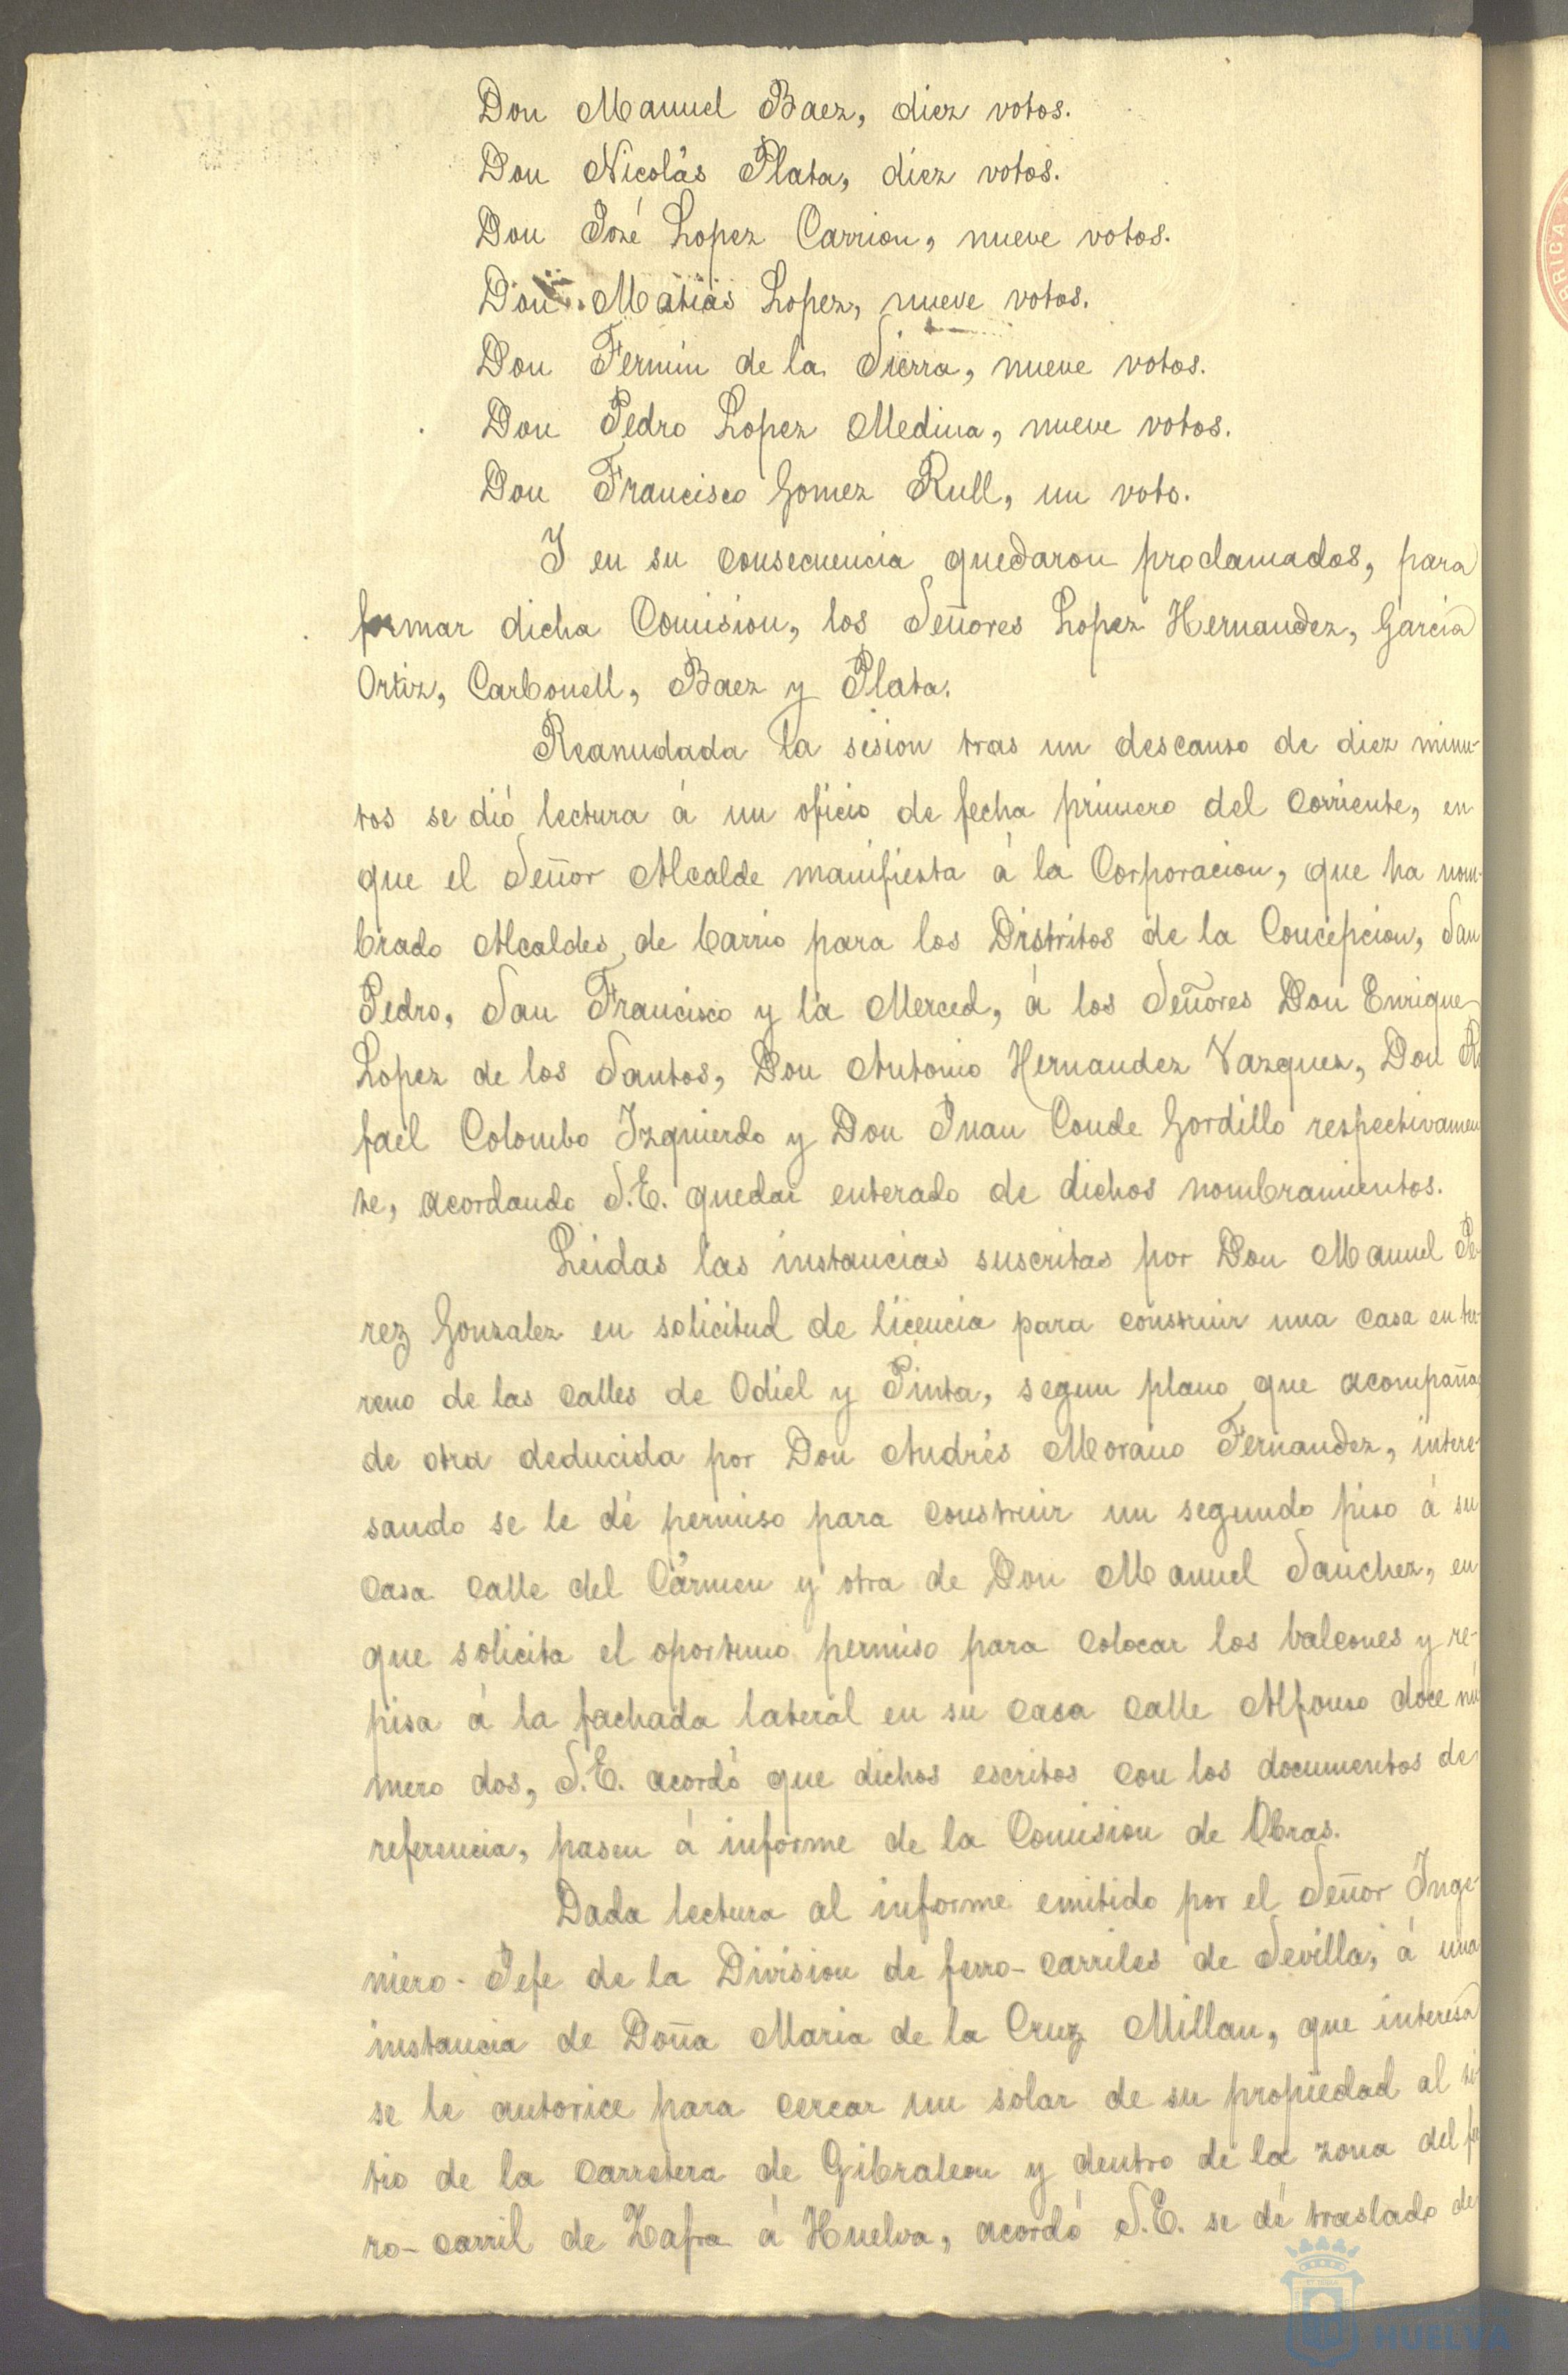 Don Manuel Baez, diez votos.
Don Nicolás Plata, diez votos.
Don José Lopez Carrion, nueve votos.
Don Matias Lopez, nueve votos.
Don Fermin de la Sierra, nueve votos.
Don Pedro Lopez Medina, nueve votos.
Don Francisco Gomez Rull, un voto.
Y en su consecuencia quedaron proclamados, para
formar dicha Comision, los Señores Lopez Hernandez, Garcia
Ortiz, Carbonell, Baez y Plata.
Reanudada la sesion tras un descanso de diez minu-
tos se dió lectura á un oficio de fecha primero del corriente, en
que el Señor Alcalde manifiesta á la Corporacion, que ha nom-
brado Alcaldes de barrio para los Distritos de la Concepcion, San
Pedro, San Francisco y la Merced, á los Señores Don Enrique
Lopez de los Santos, Don Antonio Hernandez Vazquez, Don Ra
fael Colombo Izquierdo y Don Juan Conde Gordillo respectivamen
te, acordando S.E. quedar enterado de dichos nombramientos.
Leidas las instancias suscritas por Don Manuel Pe-
rez Gonzalez en solicitud de licencia para construir una casa en ter-
reno de las calles de Odiel y Pinta, segun plano que acompaña
de otra deducida por Don Andrés Morano Fernandez, intere-
sando se le dé permiso para construir un segundo piso á su
casa calle del Cármen y otra de Don Manuel Sanchez, en
que solicita el oportuno permiso para colocar los balcones y re-
pisa á la fachada lateral en su casa calle Alfonso doce nú
mero dos, S.E. acordó que dichos escritos con los documentos de
referencia, pasen á informe de la Comision de Obras.
Dada lectura al informe emitido por el Señor Inge-
niero-Jefe de la Division de ferro-carriles de Sevilla, á una
instancia de Doña Maria de la Cruz Millan, que interesa
se le autorice para cercar un solar de su propiedad al si
tio de la carretera de Gibraleon y dentro de la zona del fer
ro-carril de Zafra á Huelva, acordó S.E. se dé traslado de
HUELVA